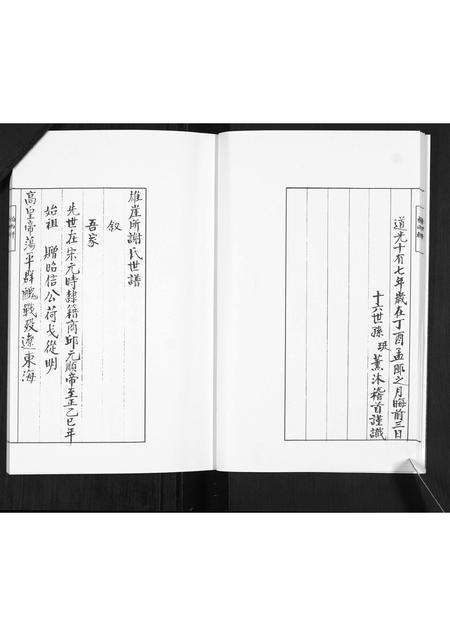 道光十有七年歲在丁酉孟陬之月晦前三日
十六世孫 玫 薰沐稽首謹識
雄崖所謝氏世譜
叙
吾家
先世在宋元時隸籍商邱元順帝至正乙巳年
始祖 贈昭信公荷戈從明
高皇帝蕩平群醜戰歿遼東海